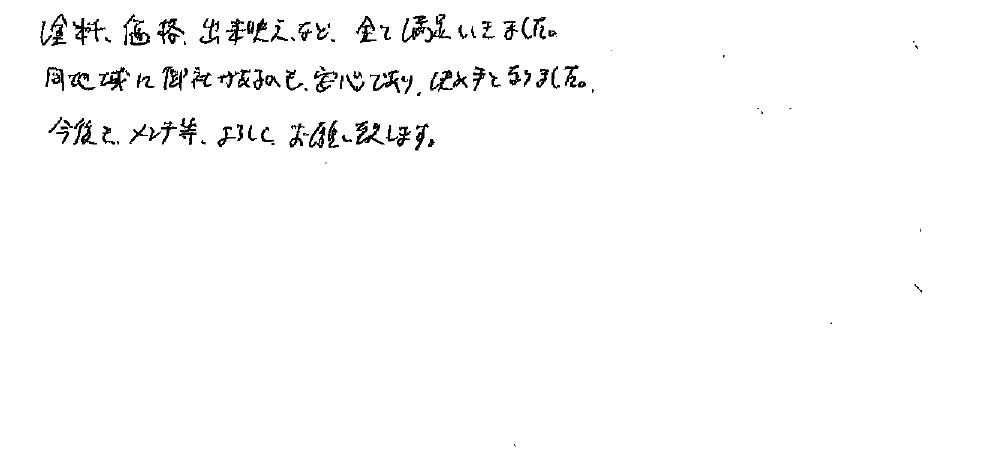 塗料、価格、出来映え、など、全て満足いきました。
同地域に御社があるのも、安心であり、決め手となりました。
今後も、メンテ等、よろしくお願い致します。